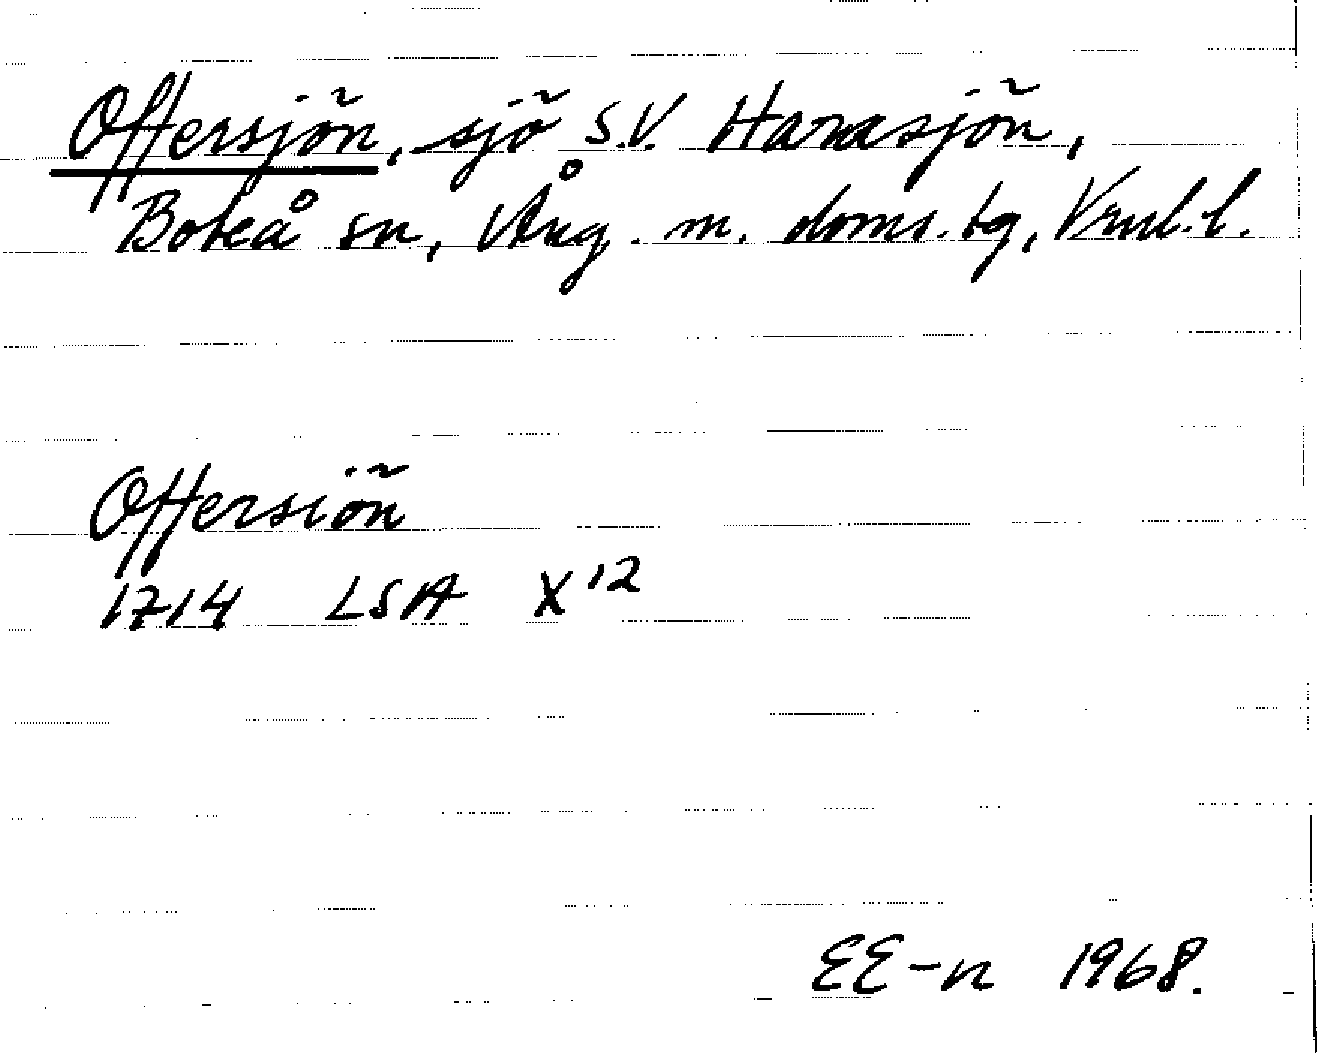 Offersjön, sjö S.V. Harasjön,
Boteå sn, Ång. m. doms. tg, Vnl. l.
Offersiön
1714 LSA X 12
EE-n 1968.